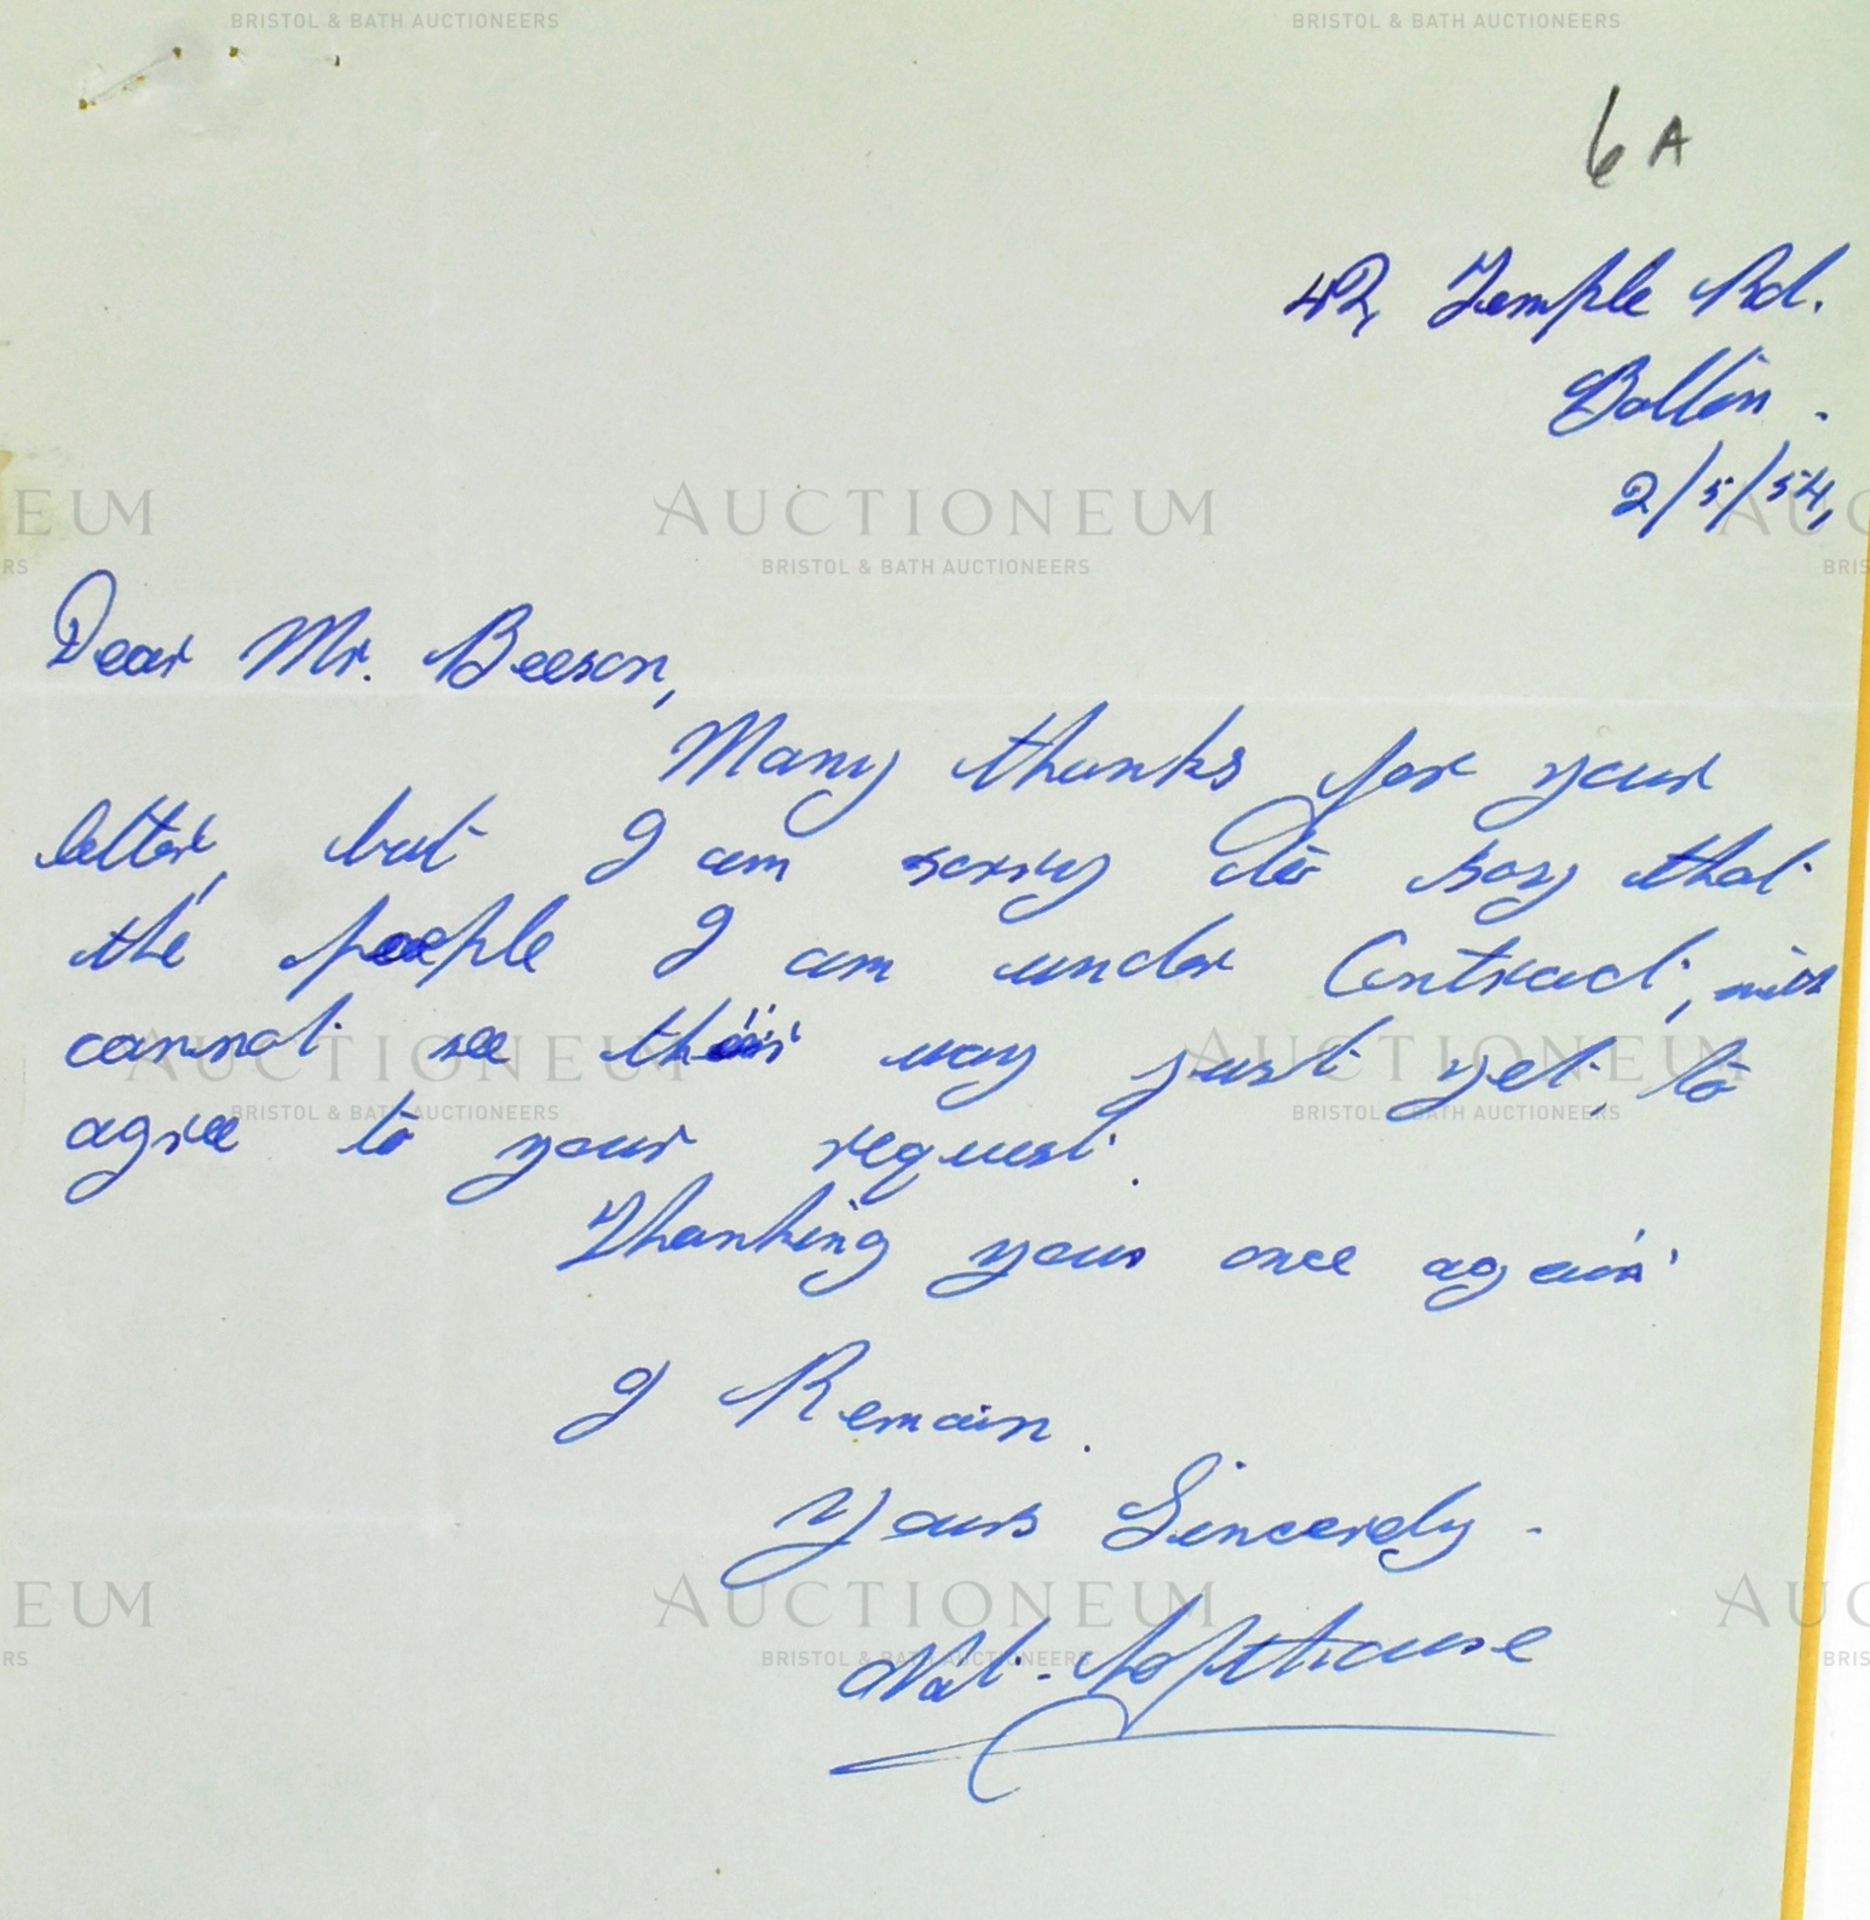 BRISTOL & BATH AUCTIONEERS BRISTOL & BATH AUCTIONEERS
6A
42 Temple Rd.
Bolton.
2/5/54,
EUM AUCTIONEUM AUC
RS BRISTOL & BATH AUCTIONEERS BRIS
Dear Mr. Beeson,
Many thanks for your
letter, but I am sorry to say that
the people I am under Contract, with
cannot see their way just yet, to
AUCTIONEUM AUCTIONEUM
BRISTOL & BATH AUCTIONEERS BRISTOL & BATH AUCTIONEERS
agree to your request.
Thanking you once again
I Remain.
Yours Sincerely.
EUM AUCTIONEUM AUC
RS BRISTOL & BATH AUCTIONEERS BRIS
Nat. Lofthouse